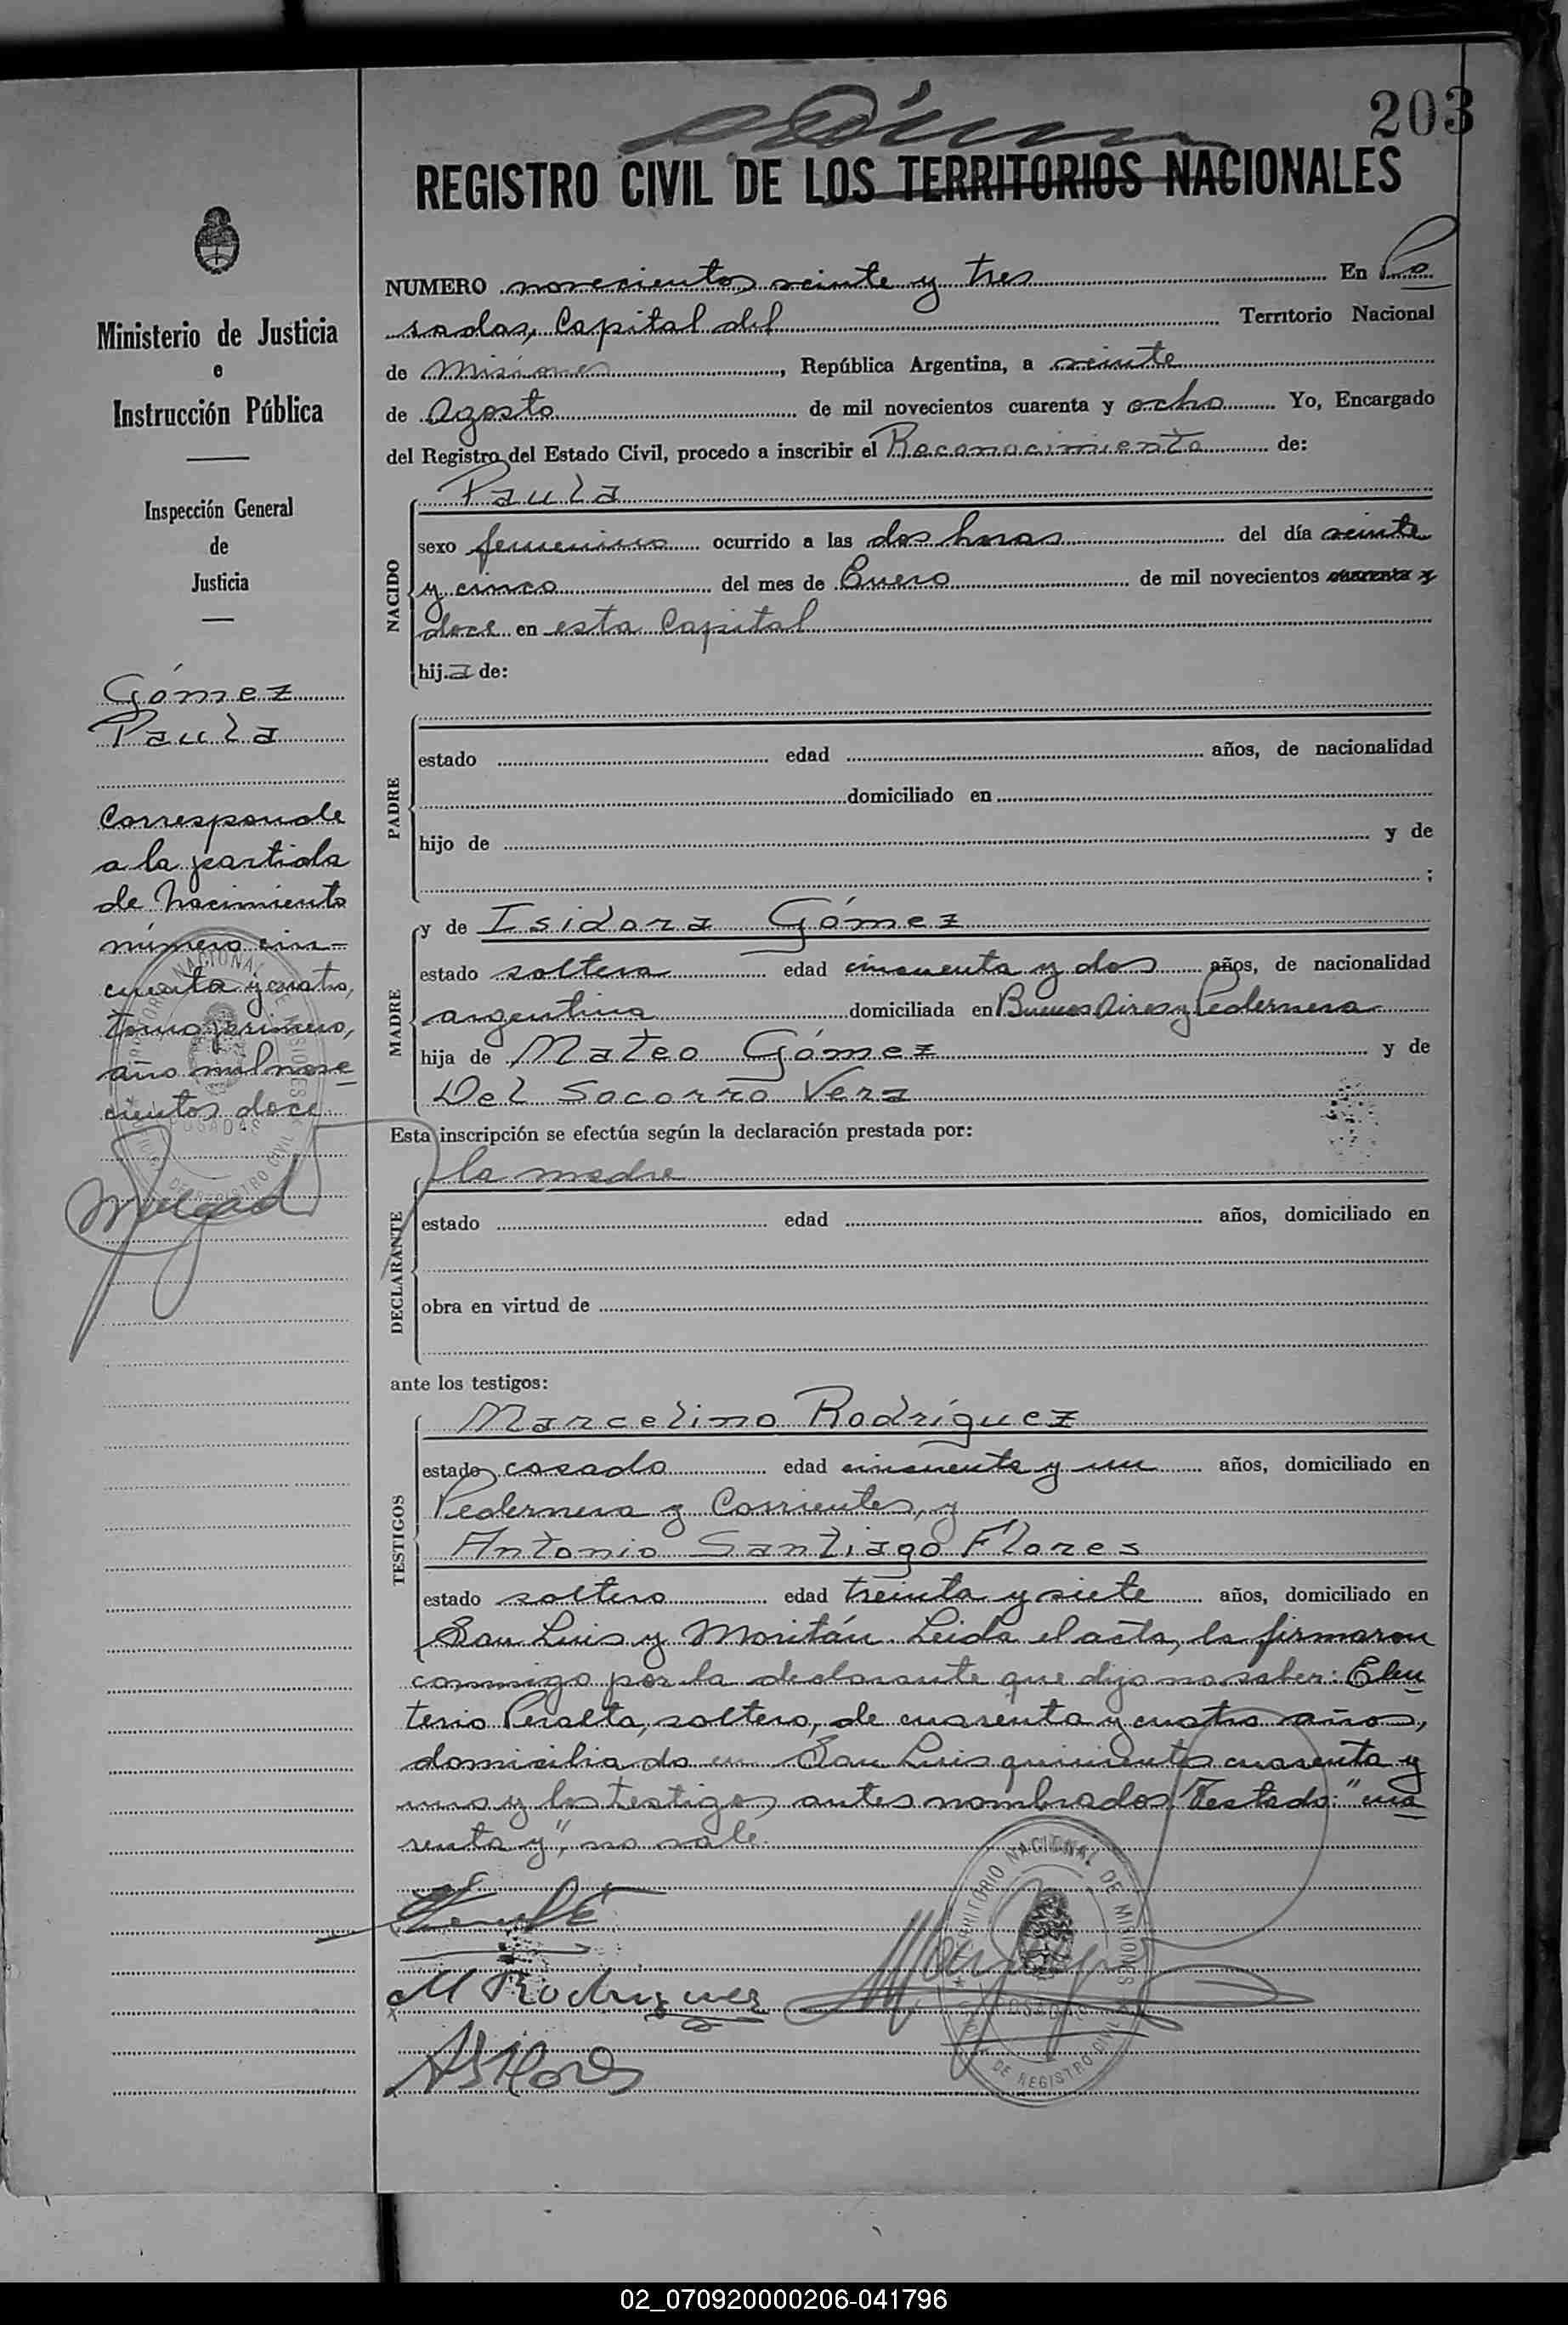 203
REGISTRO CIVIL DE LOS TERRITORIOS NACIONALES
Ministerio de Justicia
e
Instrucción Pública
Inspección General
de
Justicia
Gómez
Paula
Corresponde
a la partida
de Nacimiento
número cin-
cuenta y cuatro,
tomo primero,
año mil nove
cientos doce
NUMERO novecientos veinte y tres En Po
sadas, Capital del Territorio Nacional
de Misiones, República Argentina, a veinte
de Agosto de mil novecientos cuarenta y ocho Yo, Encargado
del Registro del Estado Civil, procedo a inscribir el Reconocimiento de:
NACIDO
Paula
sexo femenino ocurrido a las dos horas del día veinte
y cinco del mes de Enero de mil novecientos cuarenta y
doce en esta Capital
hija de:
PADRE
estado edad años, de nacionalidad
domiciliado en
hijo de y de
;
MADRE
y de Isidora Gómez
estado soltera edad cincuenta y dos años, de nacionalidad
argentina domiciliada en Buenos Aires y Pedernera
hija de Mateo Gómez y de
Del Socorro Vera
Esta inscripción se efectúa según la declaración prestada por:
DECLARANTE
la madre
estado edad años, domiciliado en
obra en virtud de
ante los testigos:
TESTIGOS
Marcelino Rodríguez
estado casado edad cincuenta y un años, domiciliado en
Pedernera y Corrientes, y
Antonio Santiago Flores
estado soltero edad treinta y siete años, domiciliado en
San Luis y Moritán. Leida el acta, la firmaron
conmigo por la declarante que dijo no saber: Eleu
terio Peralta, soltero, de cuarenta y cuatro años,
domiciliado en San Luis quinientos cuarenta y
uno y los testigos antes nombrados. Testado: "cua
renta y", no vale.
M Rodriguez
ASFlores
TERRITORIO NACIONAL DE MISIONES
POSADAS
DE REGISTRO CIVIL
02_070920000206-041796